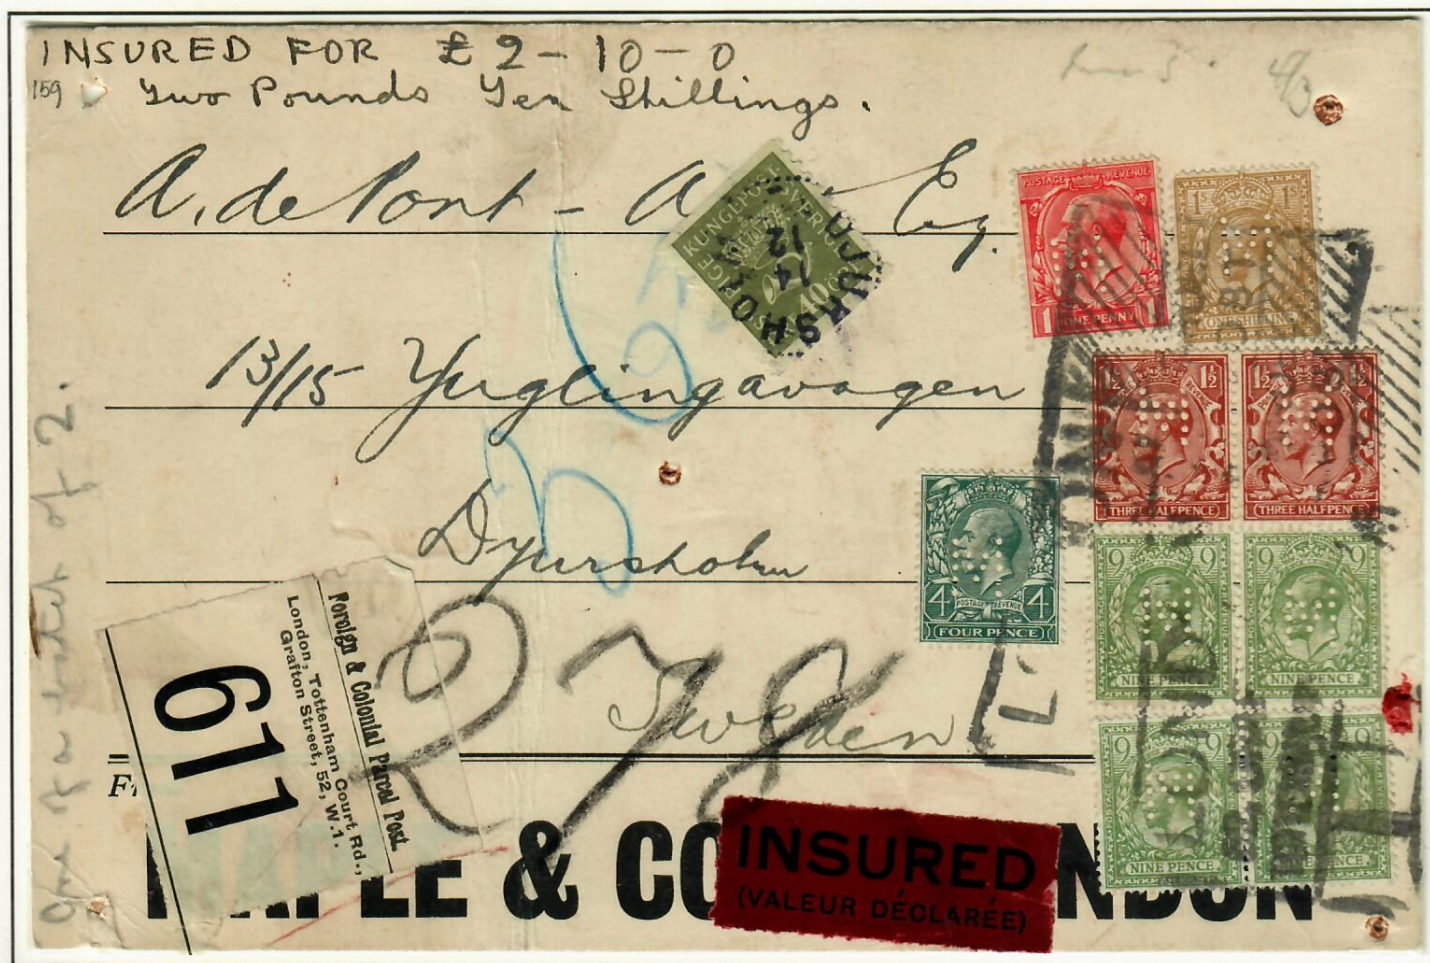 INSURED FOR £2-10-0
159
Two Pounds Ten Shillings.
A. de Pont - A Esq.
13/15 Yuglingavagen
Dyursholm
Sweden
278
one of a batch of 2.
KUNGL POST SVERIGE
40
DJURSHOLM
14
12
POSTAGE REVENUE
1 ONE PENNY 1
1S
ONE SHILLING
1½ 1½
THREE HALFPENCE
1½ 1½
THREE HALFPENCE
4 POSTAGE REVENUE 4
FOUR PENCE
9 9
NINE PENCE
9 9
NINE PENCE
9 9
NINE PENCE
9
NINE PENCE
Foreign & Colonial Parcel Post
London, Tottenham Court Rd.,
Grafton Street, 52, W.1.
611
MAPLE & CO LONDON
INSURED
(VALEUR DÉCLARÉE)